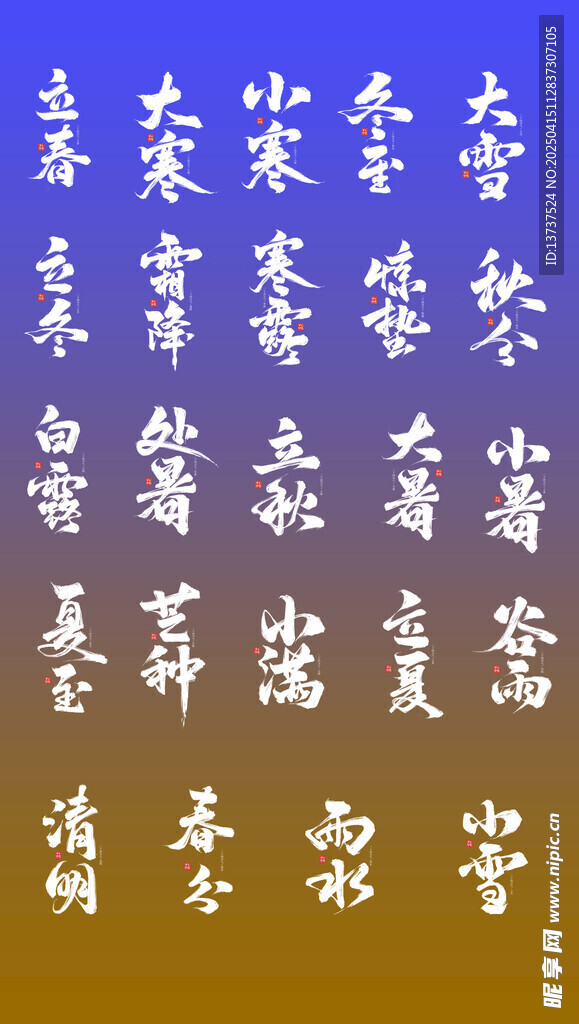 立春
大寒
小寒
冬至
大雪
立冬
霜降
寒露
惊蛰
秋分
白露
处暑
立秋
大暑
小暑
夏至
芒种
小满
立夏
谷雨
清明
春分
雨水
小雪
ID:13737524 NO:20250415112837307105
昵享网 www.nipic.cn